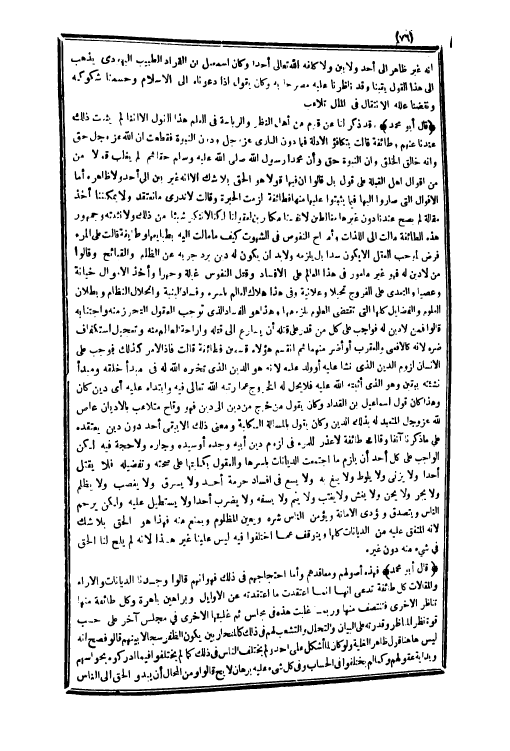 (٧٦)
انه غير ظاهر الى أحد ولا بين ولا كافه الله تعالى أحدا وكان اسمعيل بن القراد الطبيب اليهودى يذهب
الى هذا القول يقينا وقد ناظرنا عليه مصرحا به وكان يقول اذا دعوناه الى الاسلام وحسمنا شكوكه
ونقضنا علله الانتقال فى الملل تلاعب
(قال أبو محمد) قد ذكرنا عن قوم من أهل النظر والرياسة فى العلم هذا القول الا اننا لم يثبت ذلك
عندنا عنهم وطائفة قالت بتكافؤ الادلة فيما دون البارى عز وجل ودون النبوة فقطعت ان الله عز وجل حق
وانه خالق الخلق وان النبوة حق وأن محمدا رسول الله صلى الله عليه وسلم حقا ثم لم يغلب قولا من
من اقوال اهل القبلة على قول بل قالوا ان فيها قولا هو الحق بلا شك الا انه غير بين الى أحد ولا ظاهر وأما
الاقوال التى صاروا اليها فيما يثبتوا عليها منها فطائفة لزمت الحيرة وقالت لا ندرى ما نعتقد ولا يمكننا أخذ
مقالة لم يصح عندنا دون غيرها فنكون مغالطين لانفسنا مكابرين لعقولنا لكنا لا ننكر شيئا من ذلك ولا نثبته وجمهور
هذه الطائفة مالت الى اللذات وأمراح النفوس فى الشهوات كيف ما مالت اليه بطبايعها وطائفة قالت على المرء
فرض لموجب العقل الا يكون سدا بل يلزمه ولا بد ان يكون له دين يزدجر به عن الظلم والقبائح وقالوا
من لا دين له فهو غير مامور فى هذا العالم على الافساد وقتل النفوس غيلة وجهرا وأخذ الاموال خيانة
وغصبا والتعدى على الفروج تحيلا وعلانية وفى هذا هلاك العالم باسره وفساد البنية وانحلال النظام وبطلان
العلوم والفضايل كلها التى تقتضى العلوم لزومها وهذا هو الفساد الذى توجب العقول التحرز منه واجتنابه
قالوا فمن لا دين له فواجب على كل من قدر على قتله أن يسارع الى قتله واراحة العالم منه وتعجيل استكفاف
ضره لانه كالافعى والعقرب أو أضر منهما ثم انقسم هؤلاء قسمين فطائفة قالت فاذ الامر كذلك فيوجب على
الانسان لزوم الدين الذى نشأ عليه أو ولد عليه لانه هو الدين الذى تخيره الله له فى مبدأ خلقه ومبدأ
نشئته بيقين وهو الذى أثبته الله عليه فلا يحل له الخروج عما رتبه الله تعالى فيه وابتداه عليه أى دين كان
وهذا كان قول اسماعيل بن القداد وكان يقول من خرج من دين الى دين فهو وقاح متلاعب بالاديان عاص
لله عز وجل المتعبد له بذلك الدين وكان يقول بالمسالة البكاية ومعنى ذلك الا يبقى أحد دون دين يعتقده
على ما ذكرنا آنفا وقالت طائفة لا عذر للمرء فى لزوم دين أبيه وجده أو سيده وجاره ولا حجة فيه لكن
الواجب على كل أحد أن يلزم ما اجتمعت الديانات باسرها والعقول بكليتها على صحته وتفضيله فلا يقتل
أحدا ولا يزنى ولا يلوط ولا يبغ به ولا يسع فى افساد حرمة أحد ولا يسرق ولا يغصب ولا يظلم
ولا يجر ولا يجن ولا يغش ولا يغتب ولا ينم ولا يسفه ولا يضرب أحدا ولا يستطيل عليه ولكن يرحم
الناس ويتصدق ويؤدى الامانة ويؤمن الناس شره ويعين المظلوم ويمنع منه فهذا هو الحق بلا شك
لانه المتفق عليه من الديانات كلها ويتوقف عما اختلفوا فيه ليس علينا غير هذا لانه لم يلح لنا الحق
فى شىء منه دون غيره
(قال أبو محمد) فهذه أصولهم ومعاقدهم وأما احتجاجهم فى ذلك فهو انهم قالوا وجدنا الديانات والاراء
والمقالات كل طائفة تدعى انها انما اعتقدت ما اعتقدته عن الاوايل وبراهين باهرة وكل طائفة منها
تناظر الاخرى فتنتصف منها وربما غلبت هذه فى مجلس ثم غلبتها الاخرى فى مجلس آخر على حسب
قوة نظر المناظر وقدرته على البيان والتحلل والتشعب فهم فى ذلك كالمتحاربين يكون الظفر سجالا بينهم قالوا فصح انه
ليس هاهنا قول ظاهر الغلبة ولو كان لما أشكل على احد ولم يختلف الناس فى ذلك كما لم يختلفوا فيما ادركوه بحواسهم
وبداية عقولهم وكما لم يختلفوا فى الحساب وفى كل شىء عليه برهان لايح قالوا ومن المحال أن يبدو الحق الى الناس